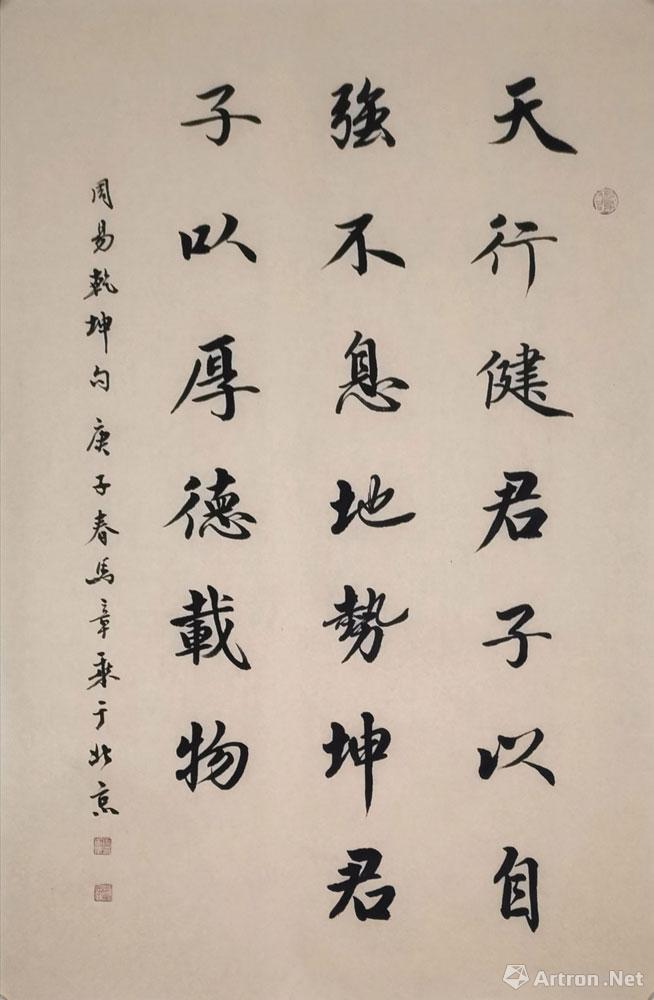 天行健君子以自
強不息地勢坤君
子以厚德載物
周易乾坤句庚子春馬章乘于北京
Artron.Net